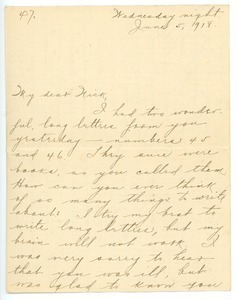 47.
Wednesday night.
June 5, 1918.
My dear Nick,
I had two wonder-
ful, long letters from you
yesterday – numbers 45
and 46. They sure were
books, as you called them.
How can you ever think
of so many things to write
about? I try my best to
write long letters, but my
brain will not work. I
was very sorry to hear
that you was ill, but
was glad to know you